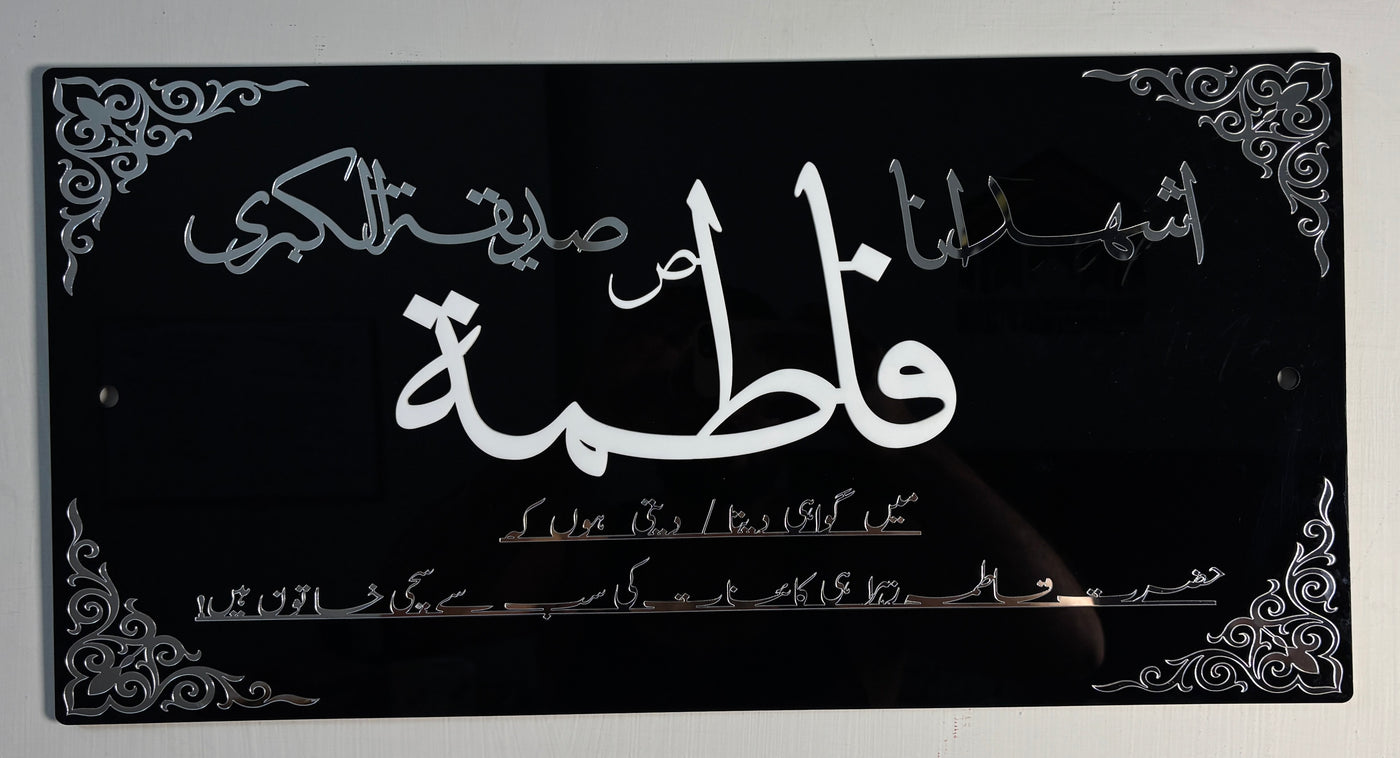 اشهد لنا فاطمة ص صدیقة الکبری
میں گواہی دیتا / دیتی ہوں کہ
حضرت فاطمہ زہرا ہی کائنات کی سب سے سچی خاتون ہیں!